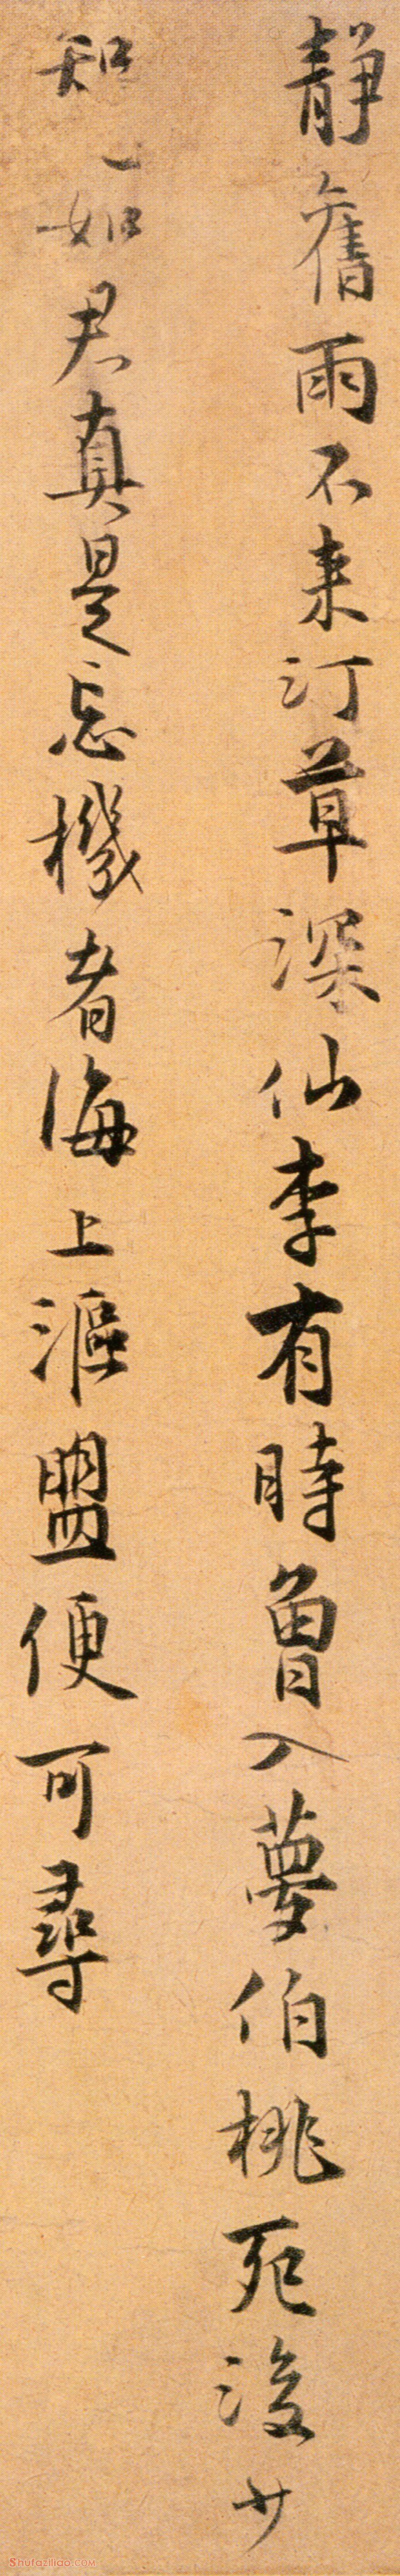 静舊雨不来汀草深仙李有時曾入夢伯桃死後少
知如君真是忘機者海上漚盟便可尋
Shufaziliao.COM